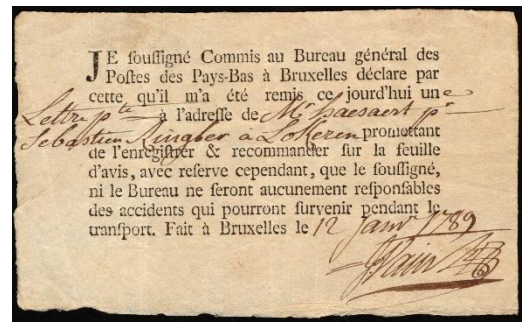 JE ſouſſigné Commis au Bureau général des
Poſtes des Pays-Bas à Bruxelles déclare par
cette qu'il m'a été remis ce jourd'hui une
Lettre pte à l'adreſſe de Mr haesaert pr
Sebastien à Lokeren promettant
de l'enregiſtrer & recommander ſur la feuille
d'avis, avec reſerve cependant, que le ſouſſigné,
ni le Bureau ne ſeront aucunement reſponſables
des accidents qui pourront ſurvenir pendant le
tranſport. Fait à Bruxelles le 12 Janv 1789